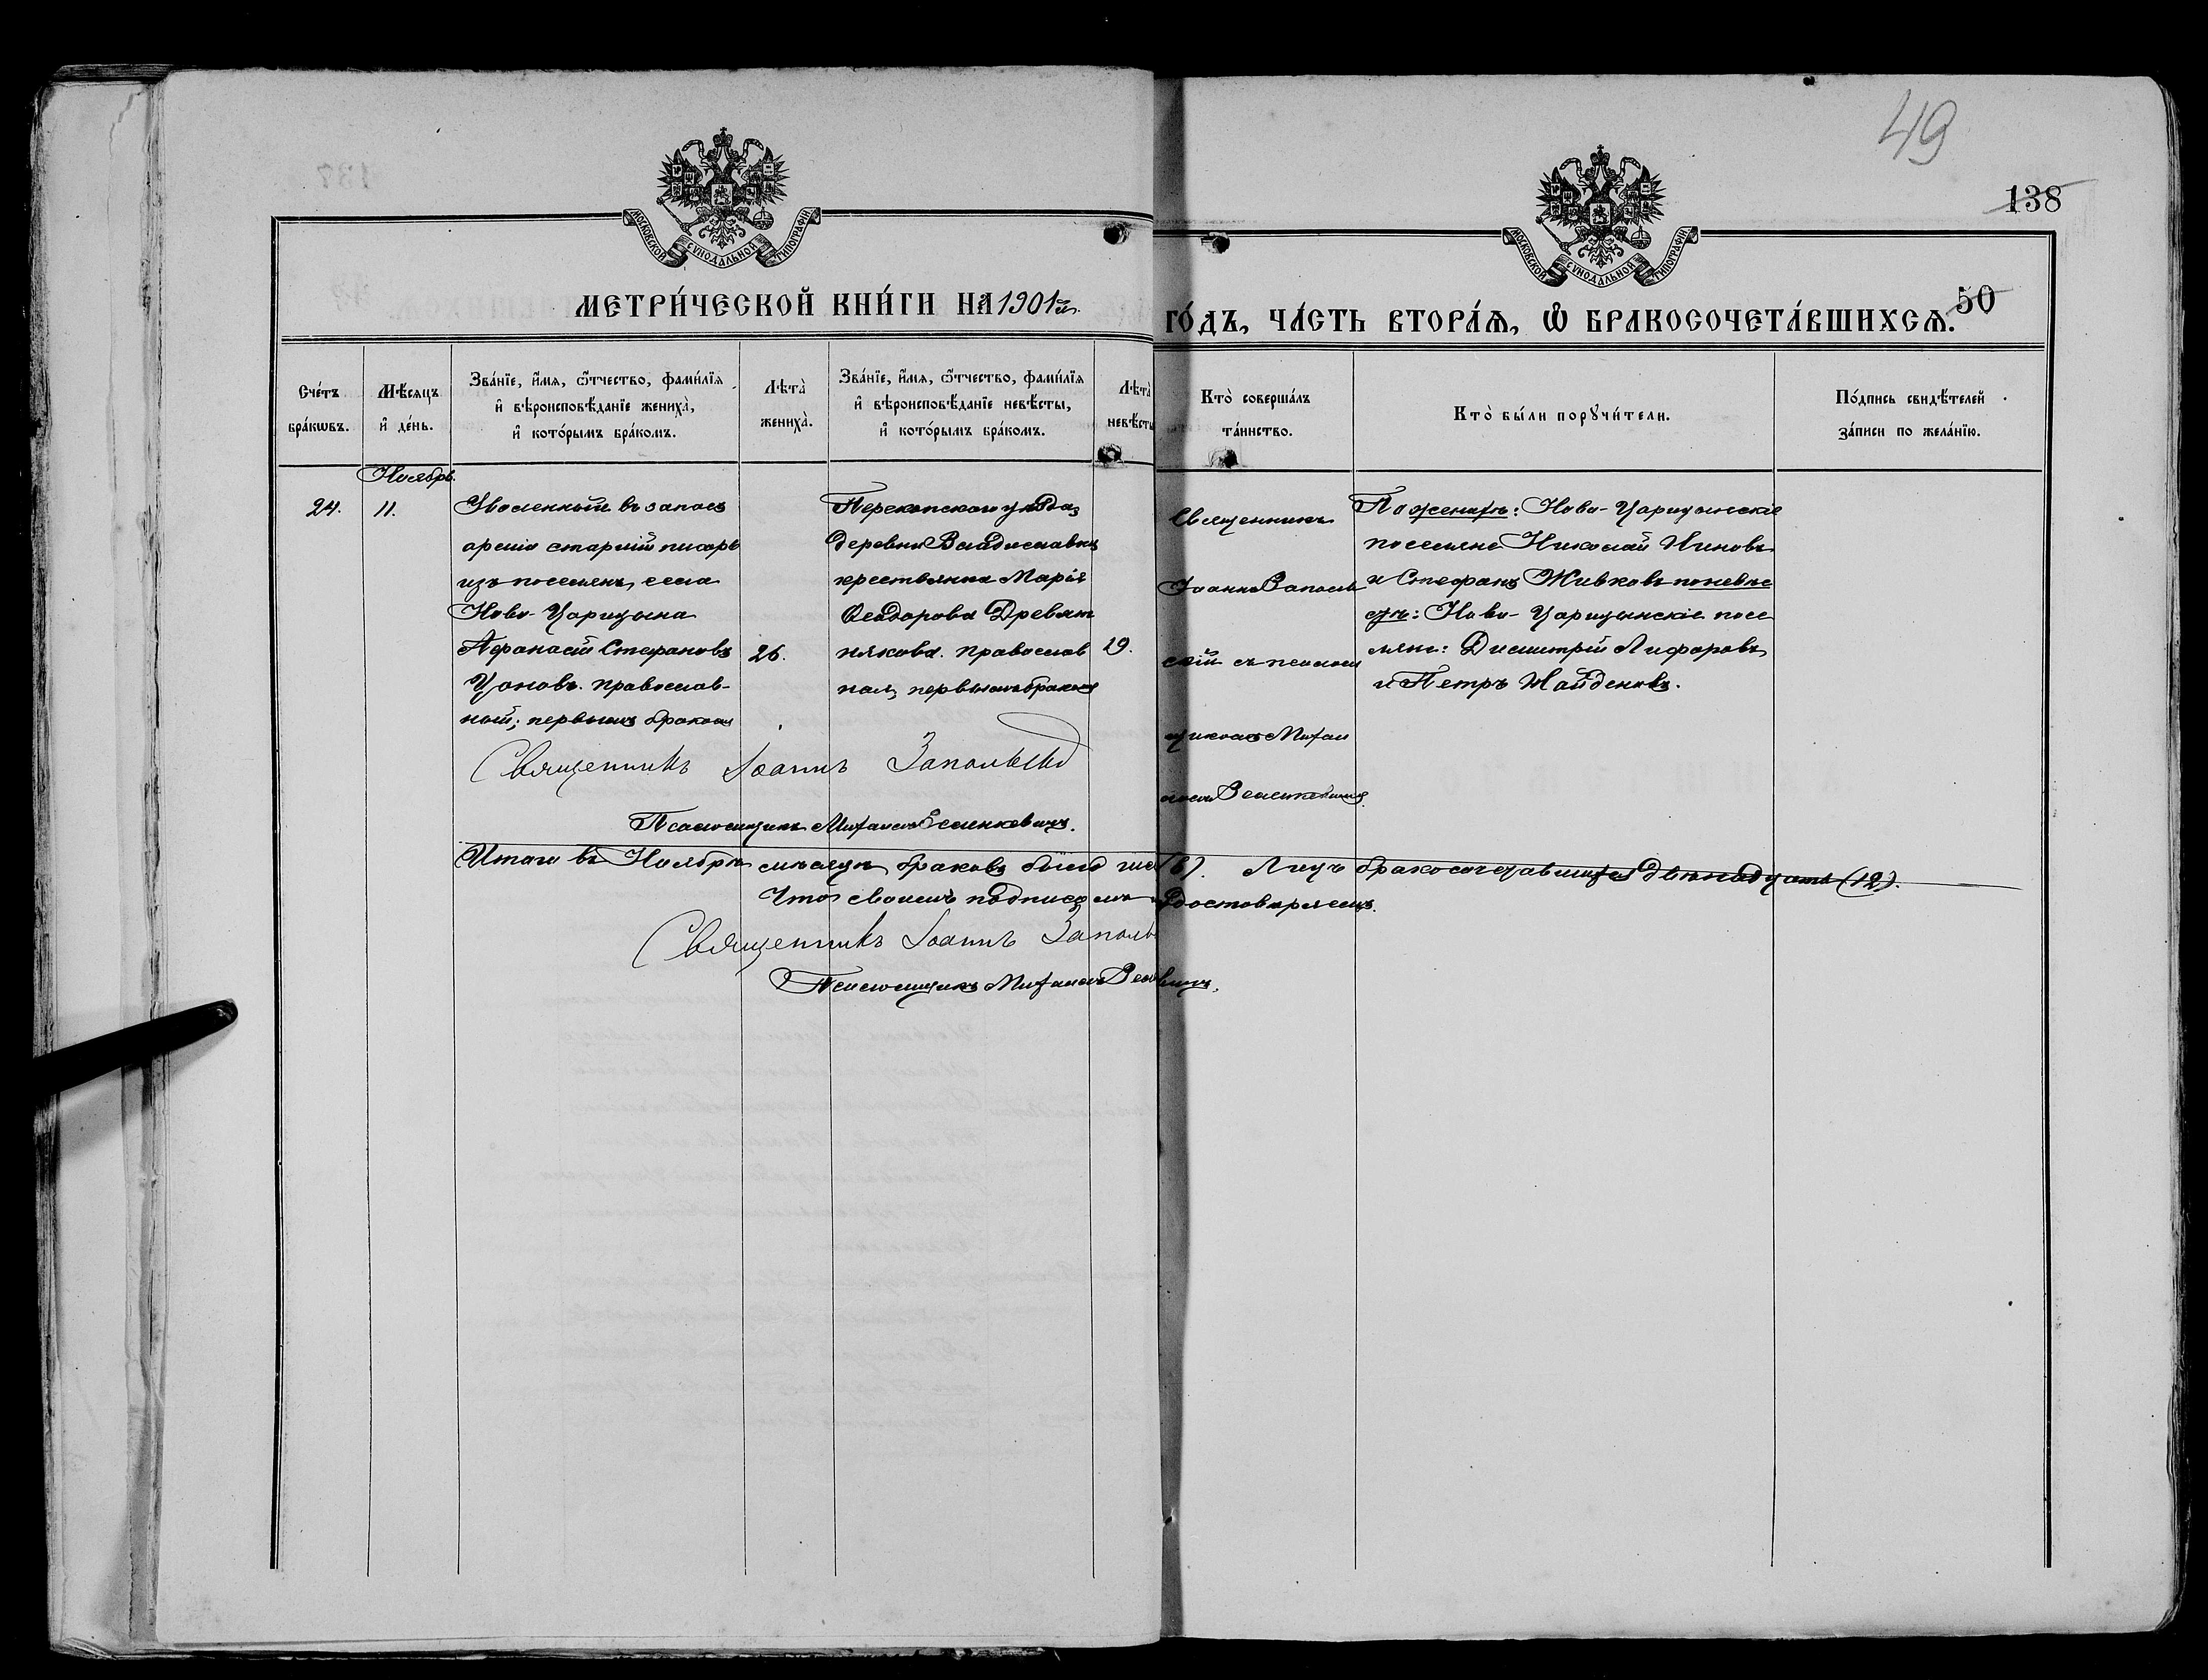 49
138
50
МОСКОВСКОЙ СѴНОДАЛЬНОЙ ТИПОГРАФІИ
МОСКОВСКОЙ СѴНОДАЛЬНОЙ ТИПОГРАФІИ
МЕТРИ́ЧЕСКОЙ КНИ́ГИ НА 1901й.
ГО́ДЪ, ЧА́СТЬ ВТОРА́Ѧ, Ѡ҆ БРАКОСОЧЕТА́ВШИХСѦ.
Сче́тъ бра́кѡвъ.
Мѣ́сѧцъ и҆ де́нь.
Зва́нїе, и҆́мѧ, ѻ҆́тчество, фами́лїѧ
и҆ вѣроисповѣ́данїе жениха̀,
и҆ кото́рымъ бра́комъ.
Лѣта̀ жениха̀.
Зва́нїе, и҆́мѧ, ѻ҆́тчество, фами́лїѧ
и҆ вѣроисповѣ́данїе невѣ́сты,
и҆ кото́рымъ бра́комъ.
Лѣта̀ невѣ́сты
Кто̀ соверша́лъ та́инство.
Кто̀ бы́ли порꙋчи́тели.
По́дпись свидѣ́телей за́писи по жела́нїю.
Ноябрь.
24.
11.
Уволенный въ запасъ
арміи старшій писарь
изъ поселянъ, села
Ново-Царицына
Афанасій Стефановъ
Цоновъ. православ-
ный; первымъ бракомъ
26.
Перекопскаго уѣзда,
деревни Владиславки
крестьянка Марія
Ѳеодорова Древят
някова. православ
ная, первымъ бракомъ
19.
Священникъ
Іоаннъ Заполь
скій съ псалом
щикомъ Михаи
ломъ
По женихѣ: Ново-Царицынскіе
поселяне Николай Ниновъ
и Стефанъ Живковъ по невѣс
тѣ: Ново-Царицынскіе посе
ляне: Димитрій Лифоровъ
и Петръ Найденовъ.
Священникъ Іоаннъ Запольскій
Псаломщикъ Михаилъ
Итого въ Ноябрѣ мѣсяцѣ браковъ было шес (6). Лицъ бракосочетавшихся двѣнадцать (12).
Что своимъ подписомъ удостовѣряемъ.
Священникъ Іоаннъ Заполь
Псаломщикъ Михаилъ